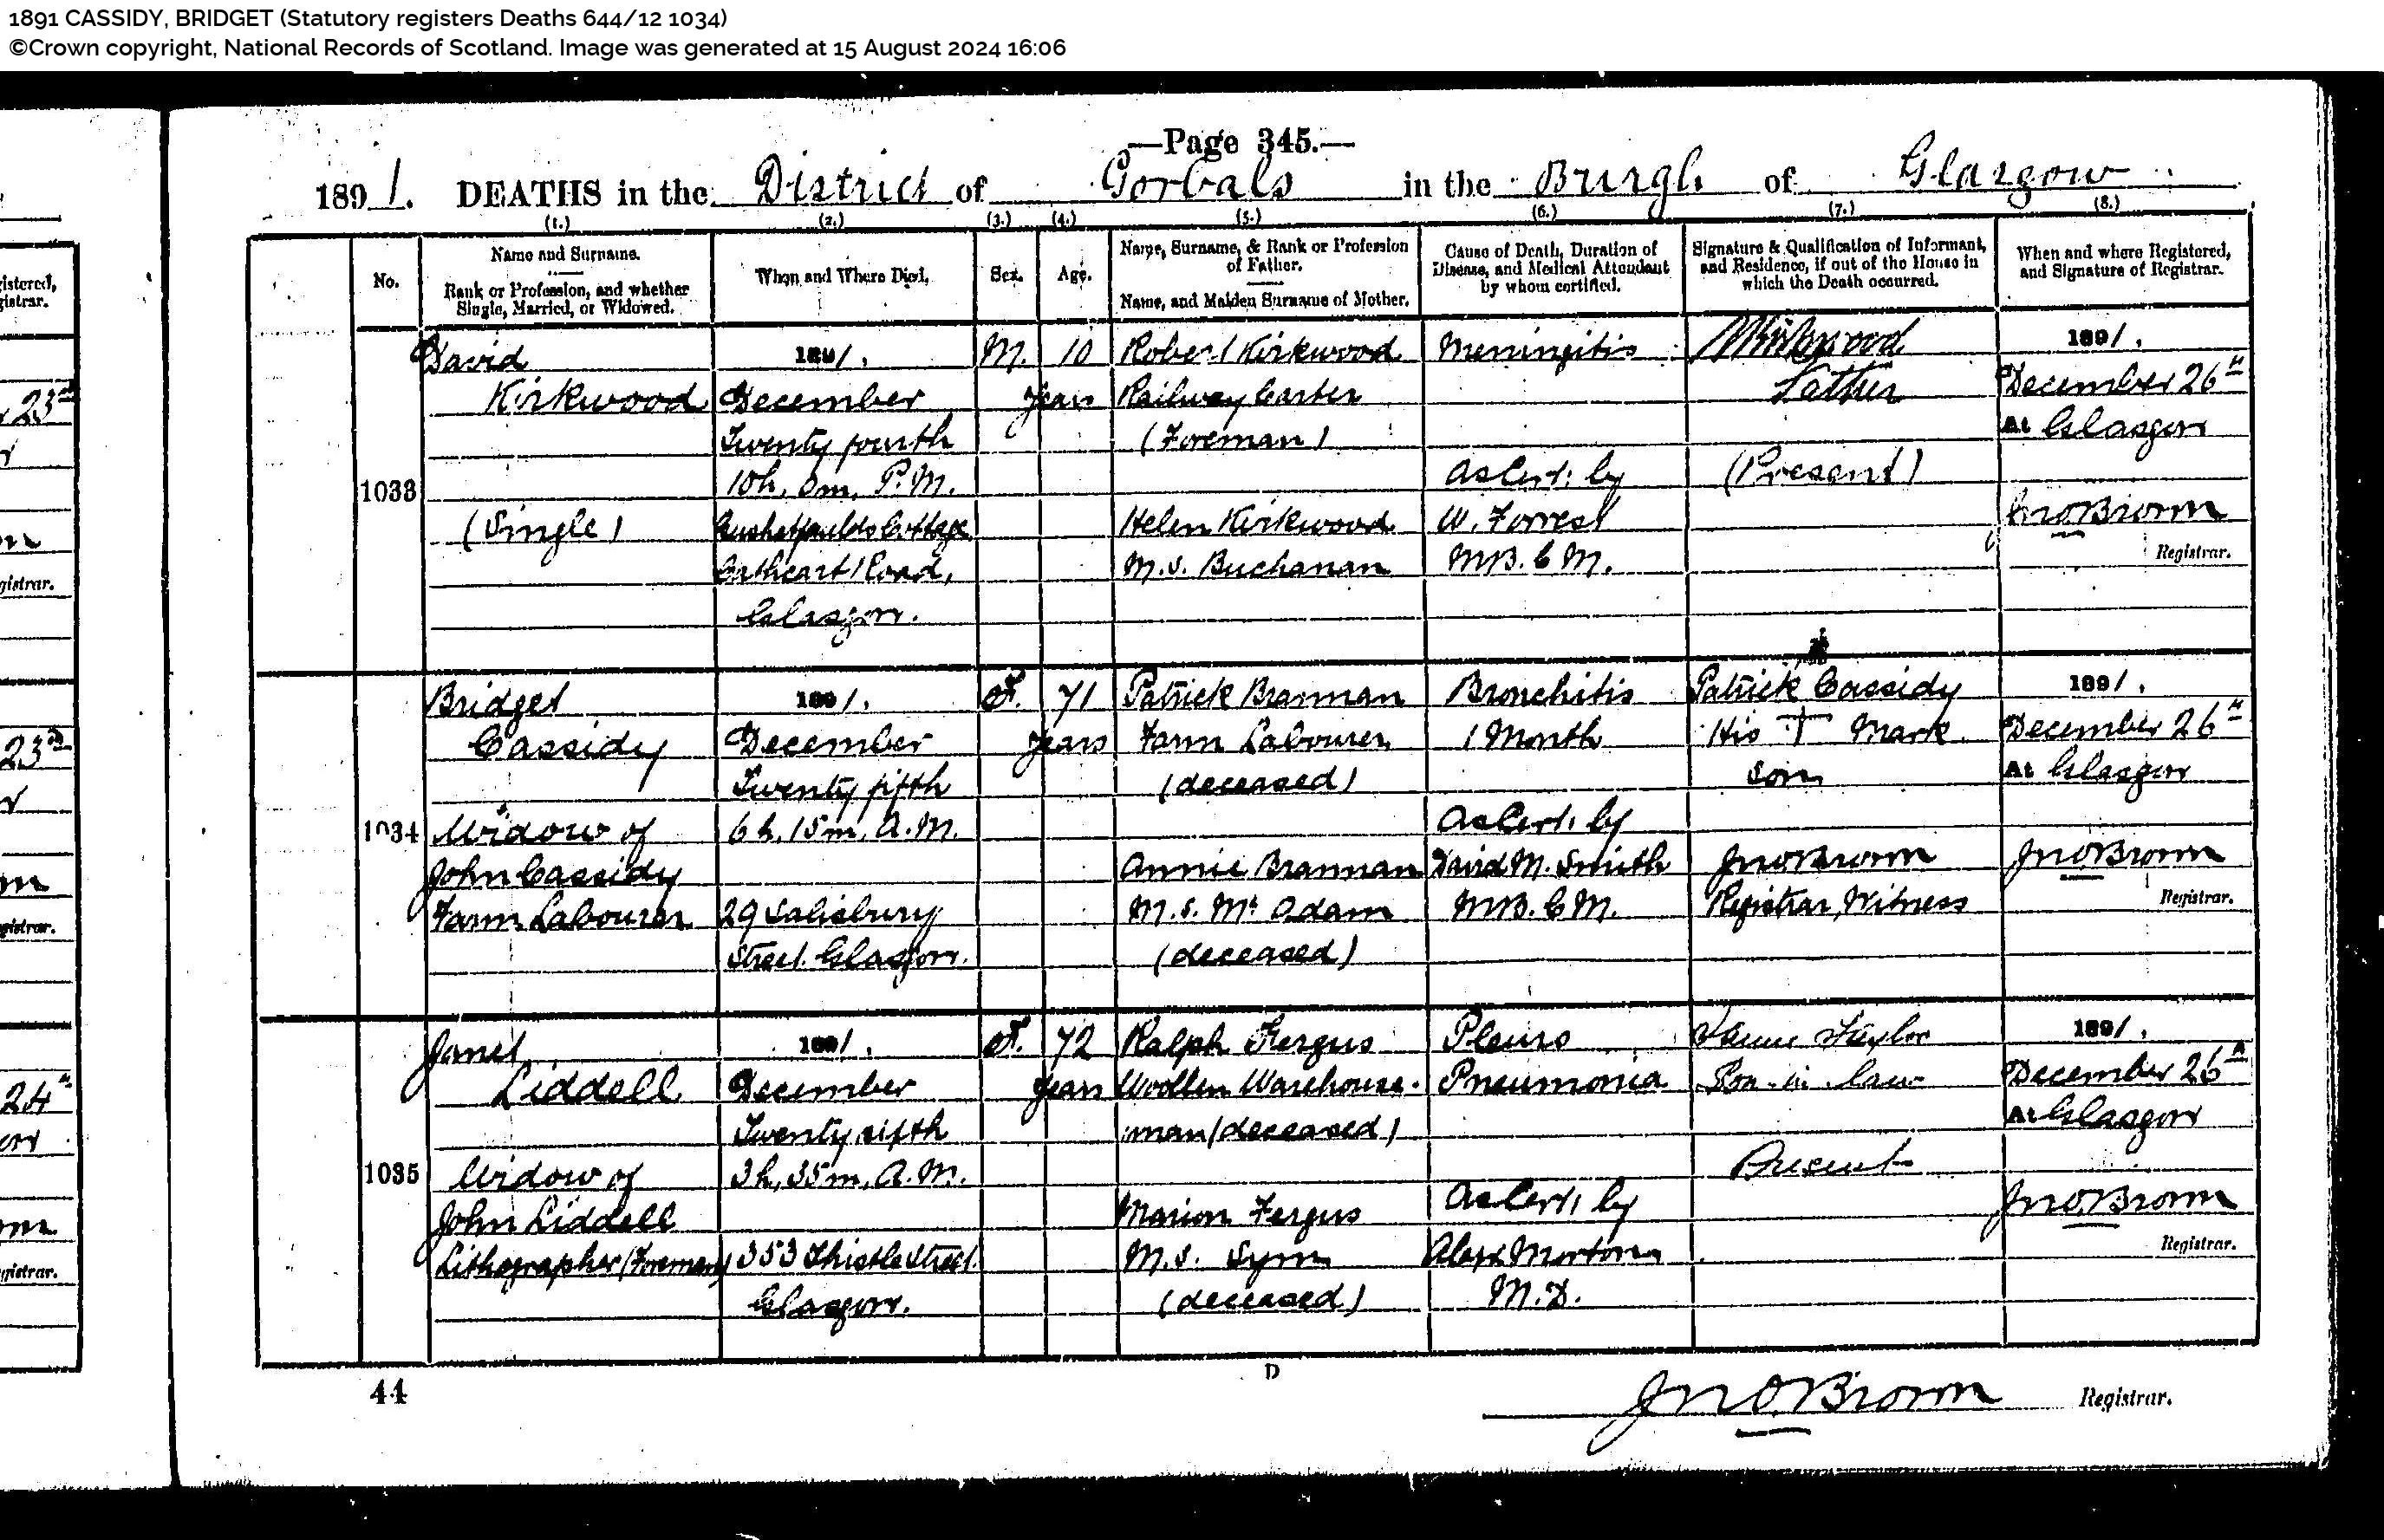 1891 CASSIDY, BRIDGET (Statutory registers Deaths 644/12 1034)
©Crown copyright, National Records of Scotland. Image was generated at 15 August 2024 16:06
—Page 345.—
1891. DEATHS in the District of Gorbals in the Burgh of Glasgow
(1.) (2.) (3.) (4.) (5.) (6.) (7.) (8.)
No.
Name and Surname.
Rank or Profession, and whether
Single, Married, or Widowed.
When and Where Died,
Sex.
Age.
Name, Surname, & Rank or Profession
of Father.
Name, and Maiden Surname of Mother.
Cause of Death, Duration of
Disease, and Medical Attendant
by whom certified.
Signature & Qualification of Informant,
and Residence, if out of the House in
which the Death occurred.
When and where Registered,
and Signature of Registrar.
1033
David
Kirkwood
(Single)
1891.
December
Twenty fourth
10h. 0m. P.M.
Cottage
Cathcart Road,
Glasgow.
M.
10
years
Robert Kirkwood
Railway Carter
(Foreman)
Helen Kirkwood
M.S. Buchanan
Meningitis
As Cert. by
W. Forrest
M.B. C.M.
Kirkwood
Father
(Present)
1891.
December 26th
At Glasgow
Jno. Brown
Registrar.
1034
Bridget
Cassidy
Widow of
John Cassidy
Farm Labourer
1891.
December
Twenty fifth
6h. 15m. A.M.
29 Salisbury
Street. Glasgow.
F.
71
years
Patrick Brannan
Farm Labourer
(deceased)
Annie Brannan
M.S. Mc Adam
(deceased)
Bronchitis
1 Month
As Cert. by
David M. Smith
M.B. C.M.
Patrick Cassidy
His + Mark
Son
Jno. Brown
Registrar, Witness
1891.
December 26th
At Glasgow
Jno. Brown
Registrar.
1035
Janet
Liddell
Widow of
John Liddell
Lithographer (Foreman)
1891.
December
Twenty fifth
3h. 35m. A.M.
353 Thistle Street.
Glasgow.
F.
72
years
Ralph Fergus
Woollen Warehouse-
man (deceased)
Marion Fergus
M.S. Sym
(deceased)
Pleuro
Pneumonia
As Cert. by
Alexr Morton
M.D.
Taylor
Son-in-law
Present
1891.
December 26th
At Glasgow
Jno. Brown
Registrar.
44
D
Jno. Brown Registrar.